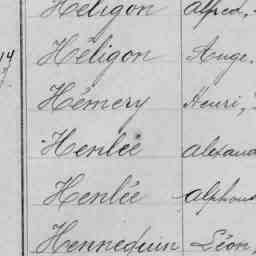 Héligon Alfred,
Héligon Auge.
Hémery Henri,
Henlée Alexand
Henlée Alphons
Hennequin Léon,